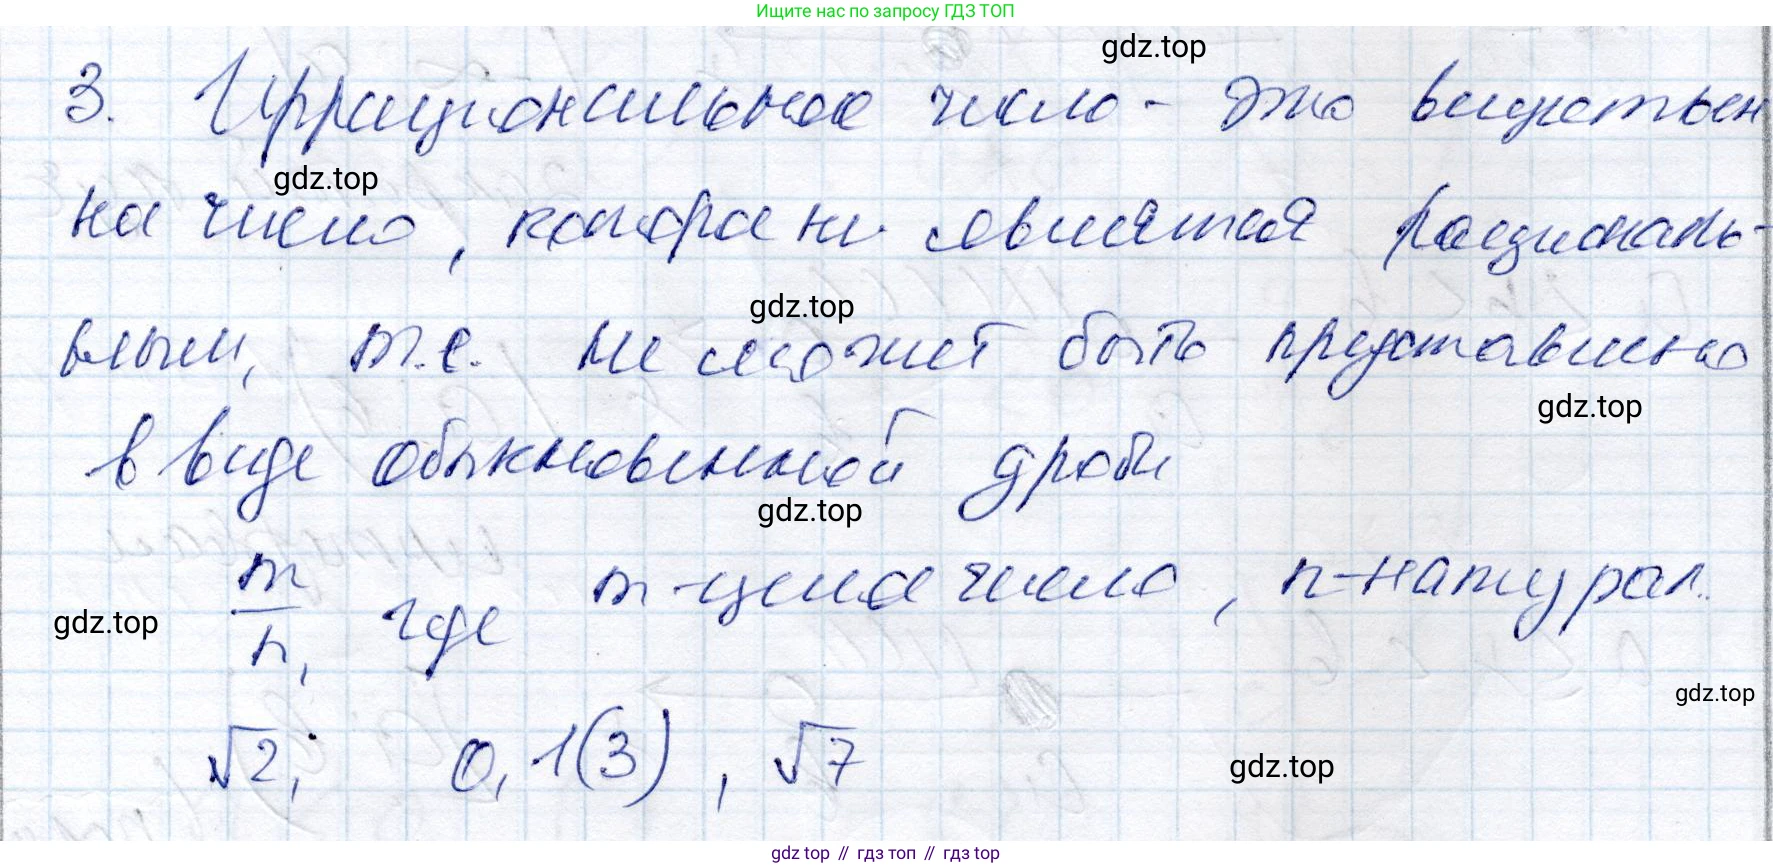 Ищите нас по запросу ГДЗ ТОП
gdz.top
3. Иррациональное число - это веществен
gdz.top
на число, которое не является рациональ-
gdz.top
ным, т.е. не может быть представлено
gdz.top
в виде обыкновенной дроби
gdz.top
m/n, где m - целое число, n - натурал.
gdz.top
gdz.top
√2; 0,1(3), √7
gdz.top
gdz.top // гдз топ // гдз top